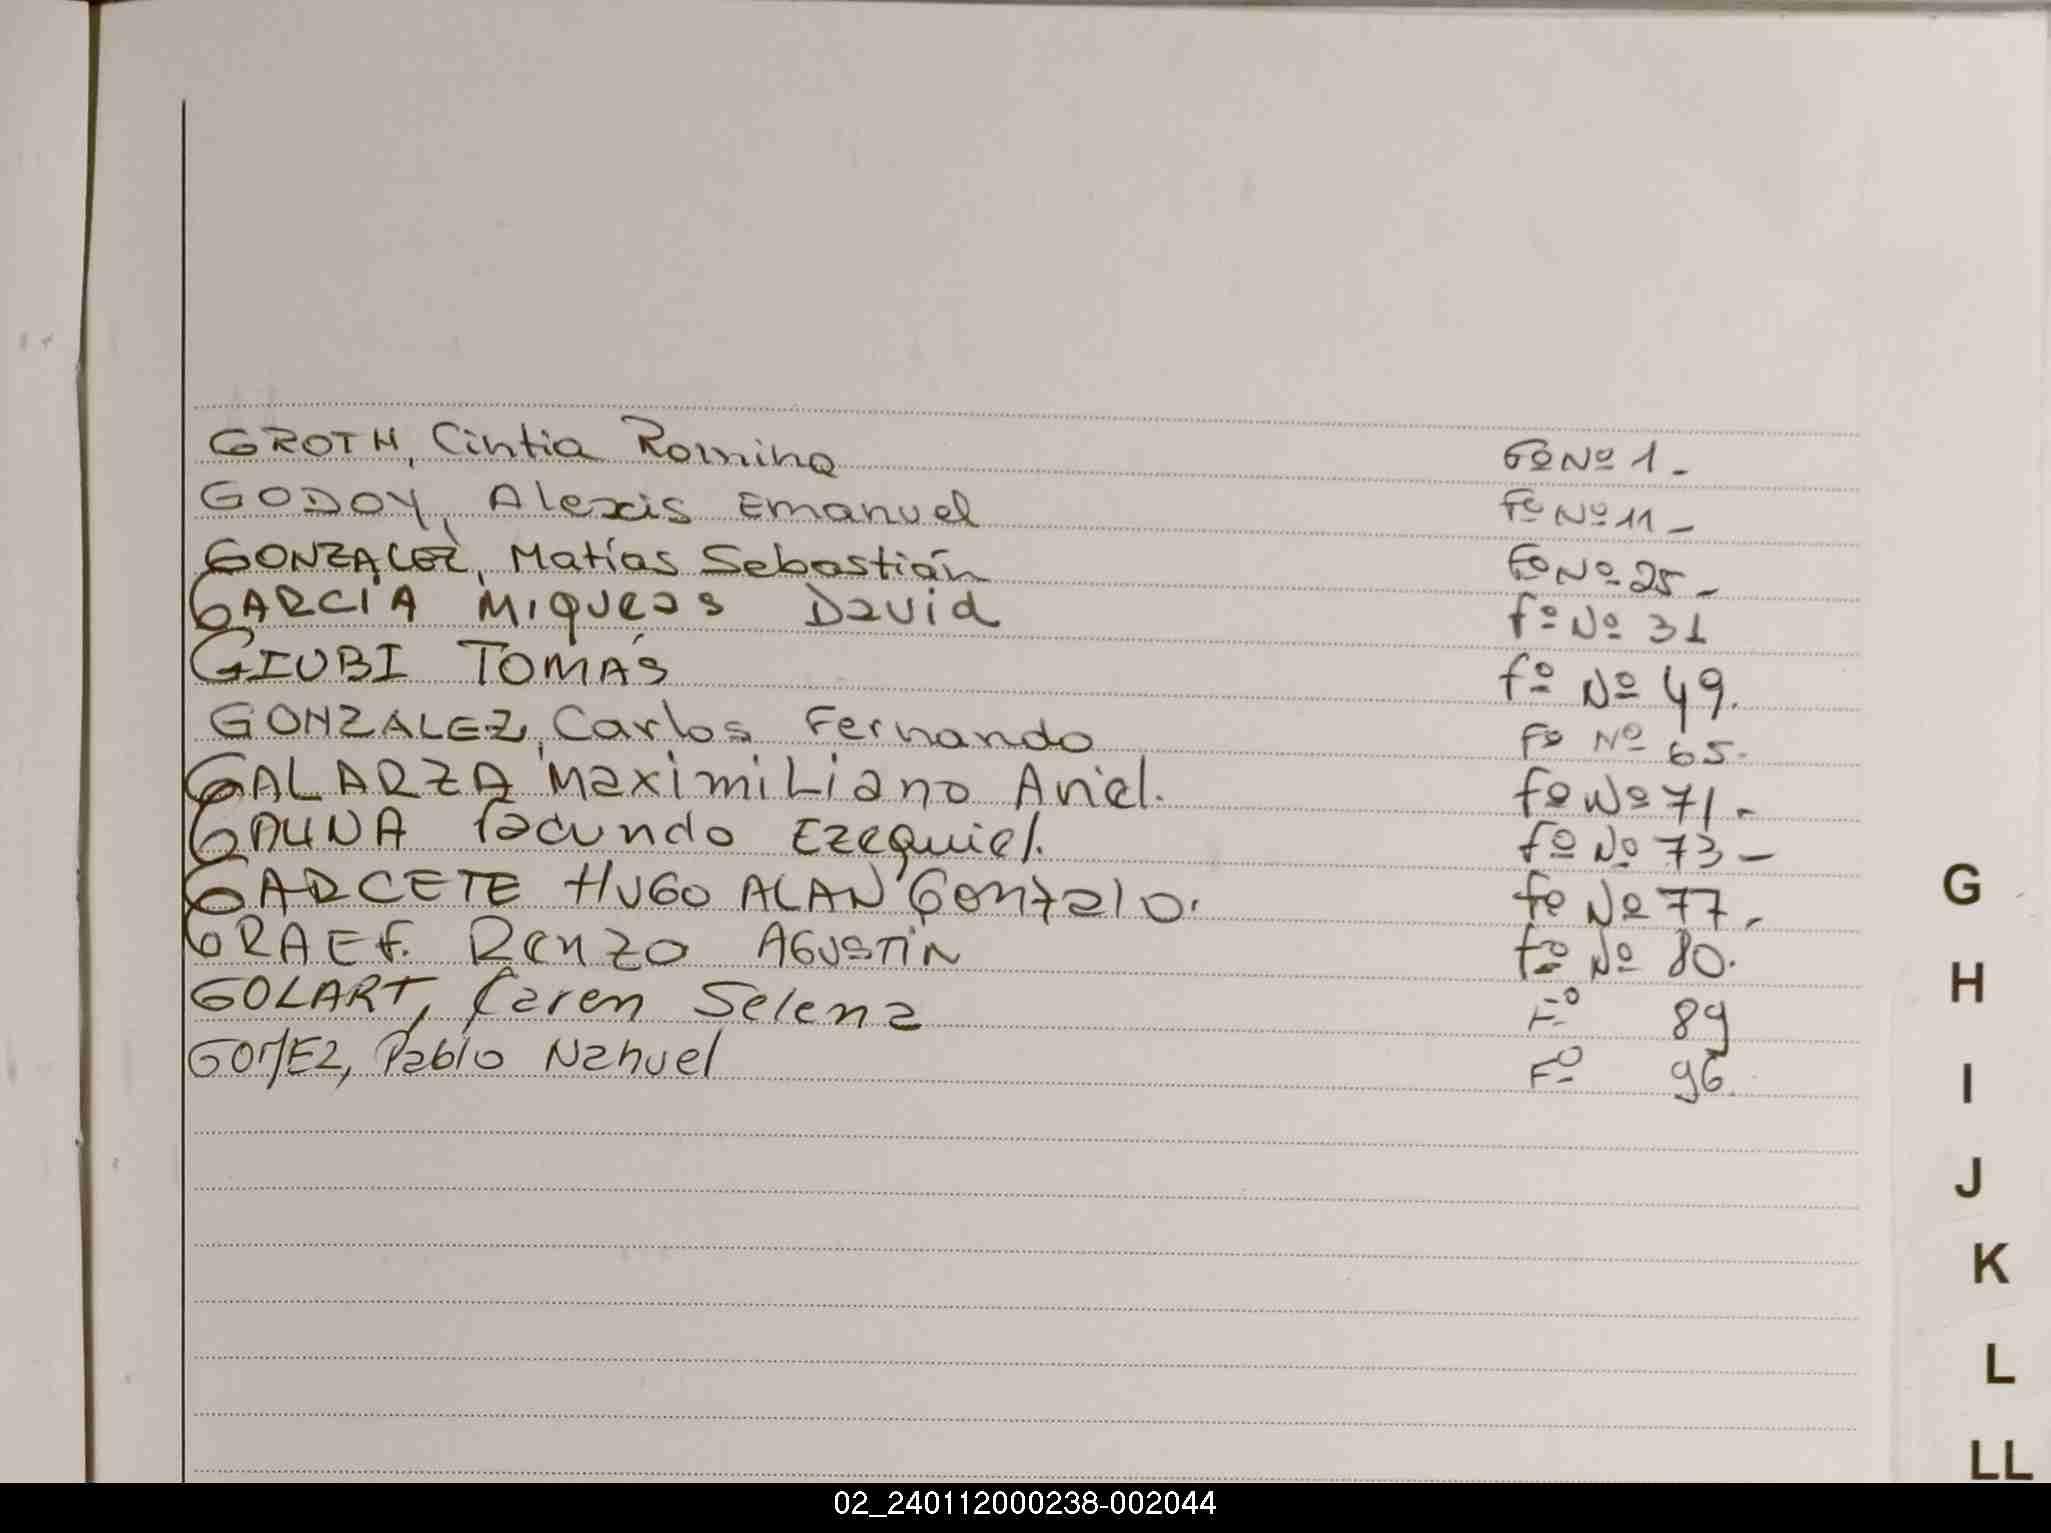 GROTH, Cintia Romina Fº Nº 1 -
GODOY, Alexis Emanuel Fº Nº 11 -
GONZALEZ, Matías Sebastián Fº Nº 25 -
GARCIA Miqueas David fº Nº 31
GIUBI TOMÁS fº Nº 49.
GONZALEZ, Carlos Fernando Fº Nº 65.
GALARZA Maximiliano Ariel. fº Nº 71 -
GAUNA facundo Ezequiel. fº Nº 73 -
GARCETE HUGO ALAN Gonzalo. fº Nº 77 -
GRAEF. Renzo AGUSTÍN fº Nº 80.
GOLART, Karen Selena Fº 89
GOMEZ, Pablo Nahuel Fº 96.
G
H
I
J
K
L
LL
02_240112000238-002044